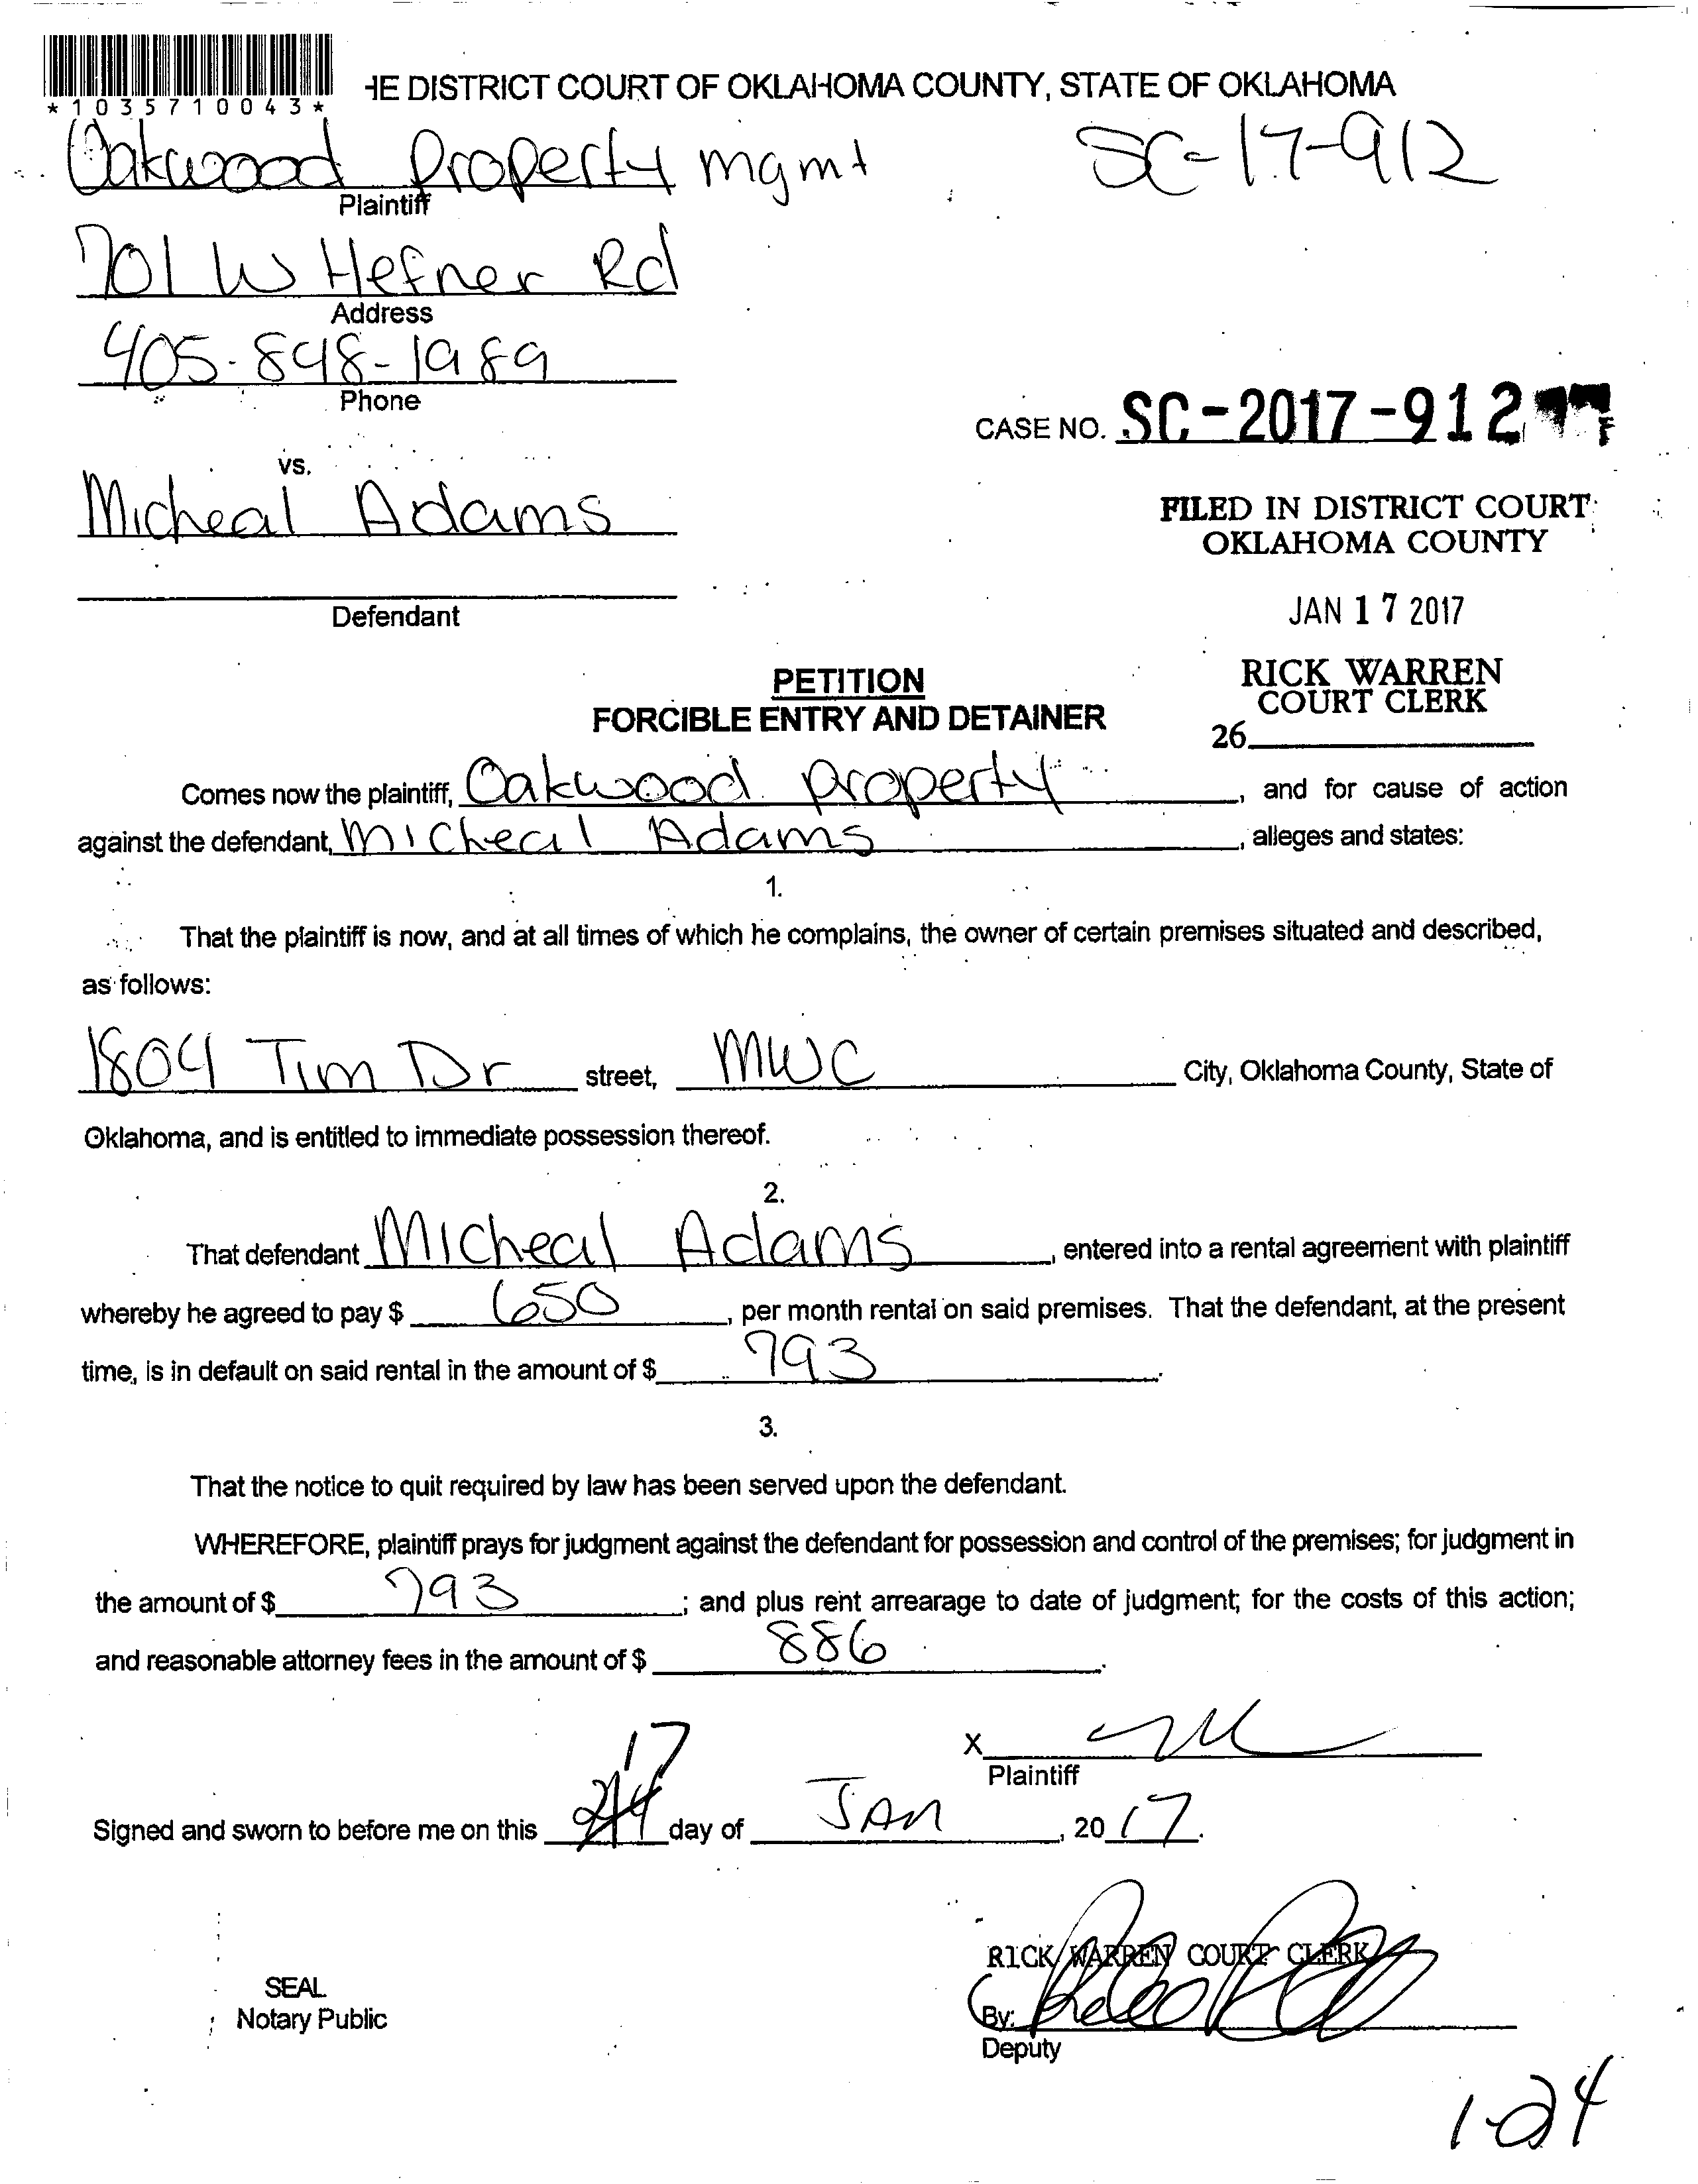 *1035710043*
HE DISTRICT COURT OF OKLAHOMA COUNTY, STATE OF OKLAHOMA
Oakwood Property mgmt
SC-17-912
Plaintiff
701 W Hefner Rd
Address
405-848-1989
Phone
CASE NO. SC-2017-912
vs.
Micheal Adams
FILED IN DISTRICT COURT
OKLAHOMA COUNTY
Defendant
JAN 17 2017
PETITION
FORCIBLE ENTRY AND DETAINER
RICK WARREN
COURT CLERK
26
Comes now the plaintiff, Oakwood property, and for cause of action
against the defendant, Micheal Adams, alleges and states:
1.
That the plaintiff is now, and at all times of which he complains, the owner of certain premises situated and described,
as follows:
1804 Tim Dr street, MWC City, Oklahoma County, State of
Oklahoma, and is entitled to immediate possession thereof.
2.
That defendant Micheal Adams, entered into a rental agreement with plaintiff
whereby he agreed to pay $ 650, per month rental on said premises. That the defendant, at the present
time, is in default on said rental in the amount of $ 793.
3.
That the notice to quit required by law has been served upon the defendant.
WHEREFORE, plaintiff prays for judgment against the defendant for possession and control of the premises; for judgment in
the amount of $ 793; and plus rent arrearage to date of judgment; for the costs of this action;
and reasonable attorney fees in the amount of $ 886.
X
Plaintiff
17
Signed and sworn to before me on this 24 day of JAN, 2017.
RICK WARREN COURT CLERK
SEAL
Notary Public
By:
Deputy
1-24